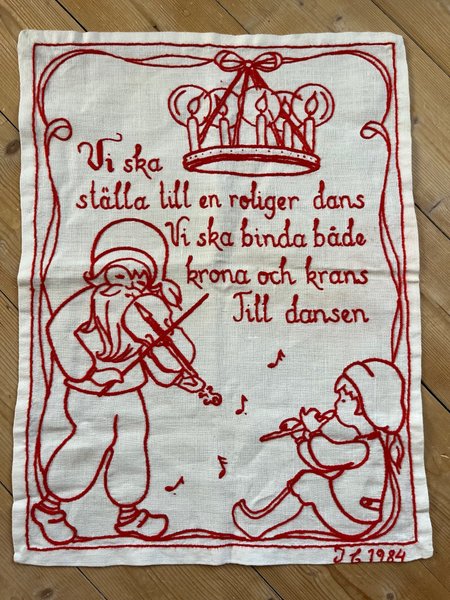 Vi ska
ställa till en roliger dans
Vi ska binda både
krona och krans
Till dansen
J C 1984